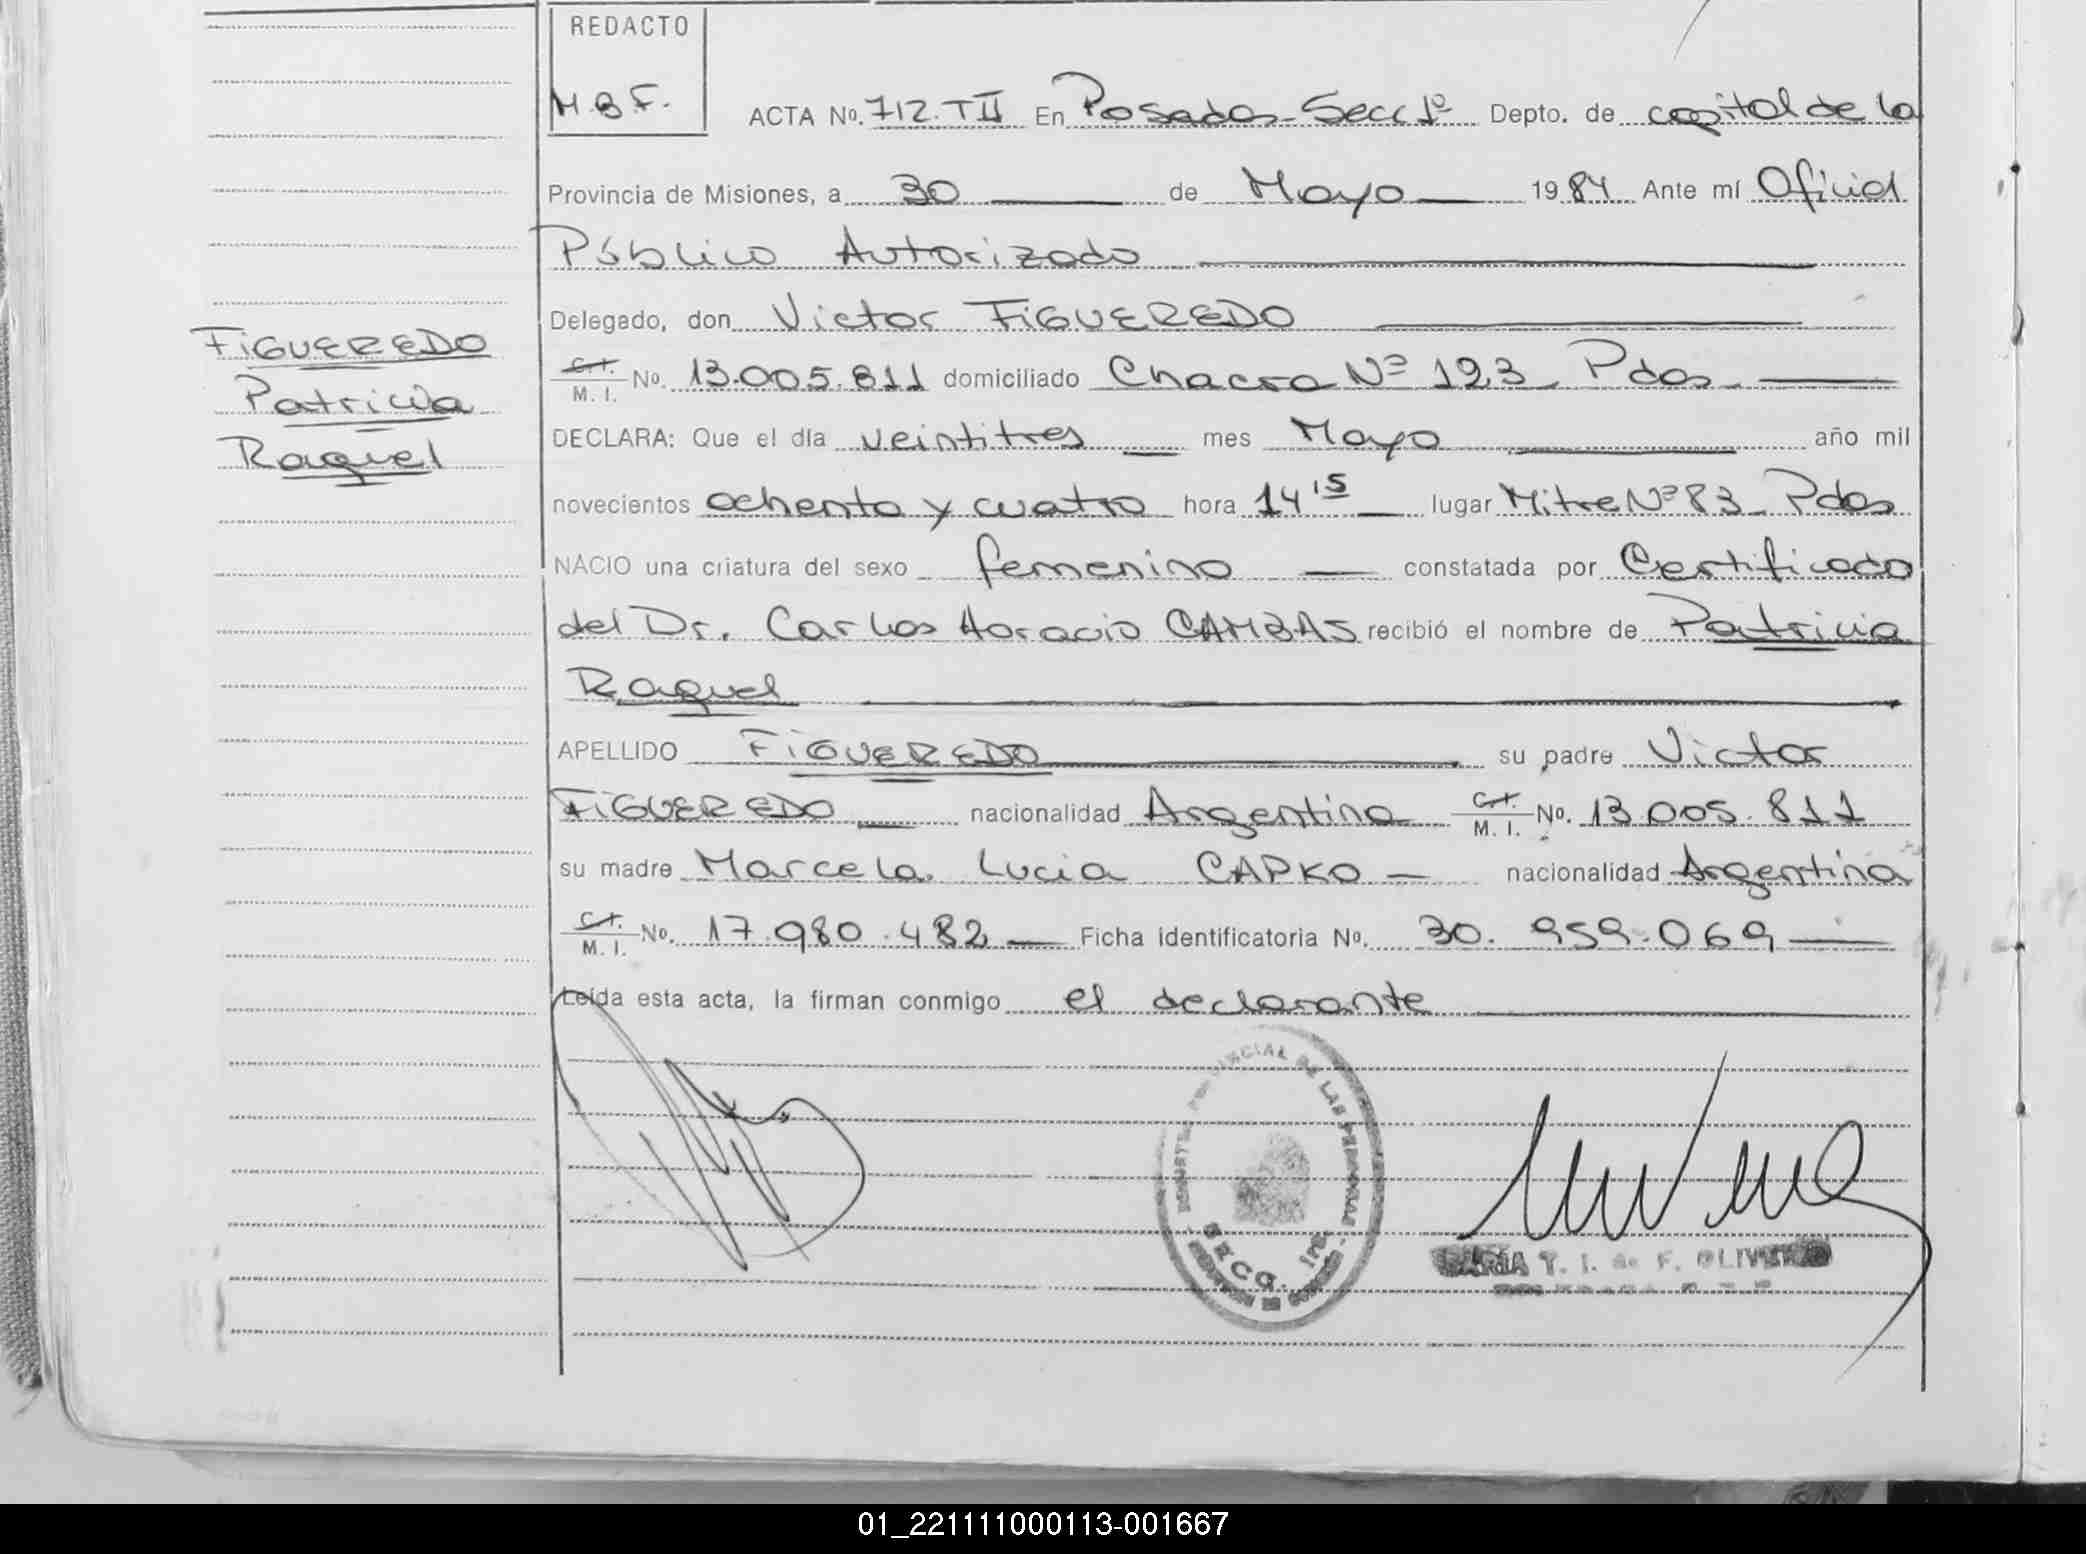 REDACTO
M.B.F.
ACTA No. 712.TII En Posadas-Secc 1º Depto. de capital de la
Provincia de Misiones, a 30 de Mayo 1984 Ante mí Oficial
Público Autorizado
Delegado, don Victor FIGUEREDO
C.I. M. I. No. 13.005.811 domiciliado Chacra Nº 123 Pdas.
DECLARA: Que el día veintitres mes Mayo año mil
novecientos ochenta y cuatro hora 14 15 lugar Mitre Nº 83 Pdas
NACIO una criatura del sexo femenino constatada por Certificado
del Dr. Carlos Horacio CAMBAS recibió el nombre de Patricia
Raquel
APELLIDO FIGUEREDO su padre Victor
FIGUEREDO nacionalidad Argentina C.I. M. I. No. 13.005.811
su madre Marcela Lucia CAPKO nacionalidad Argentina
C.I. M. I. No. 17.980.482 Ficha identificatoria No. 30.959.069
Leída esta acta, la firman conmigo el declarante
FIGUEREDO
Patricia
Raquel
PROVINCIAL DE LAS PERSONAS
SECC. 1ra.
MARIA T. I. de F. OLIVEIRA
01_221111000113-001667